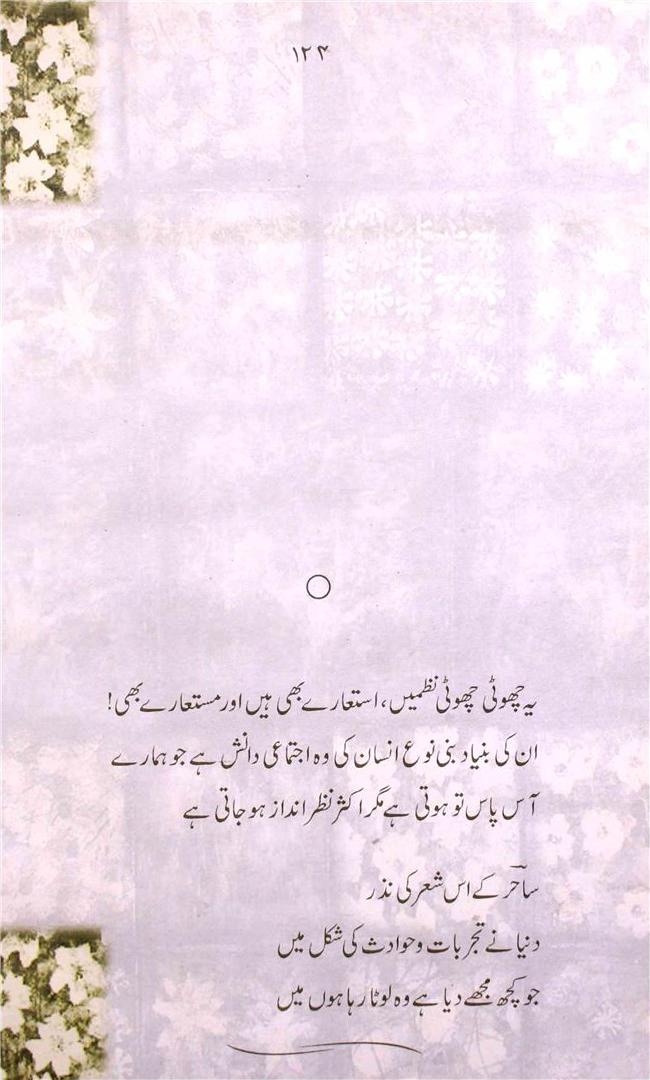 ۱۲۴
یہ چھوٹی چھوٹی نظمیں، استعارے بھی ہیں اور مستعارے بھی!
ان کی بنیاد بنی نوع انسان کی وہ اجتماعی دانش ہے جو ہمارے
آس پاس تو ہوتی ہے مگر اکثر نظر انداز ہو جاتی ہے
ساحرؔ کے اس شعر کی نذر
دنیا نے تجربات و حوادث کی شکل میں
جو کچھ مجھے دیا ہے وہ لوٹا رہا ہوں میں